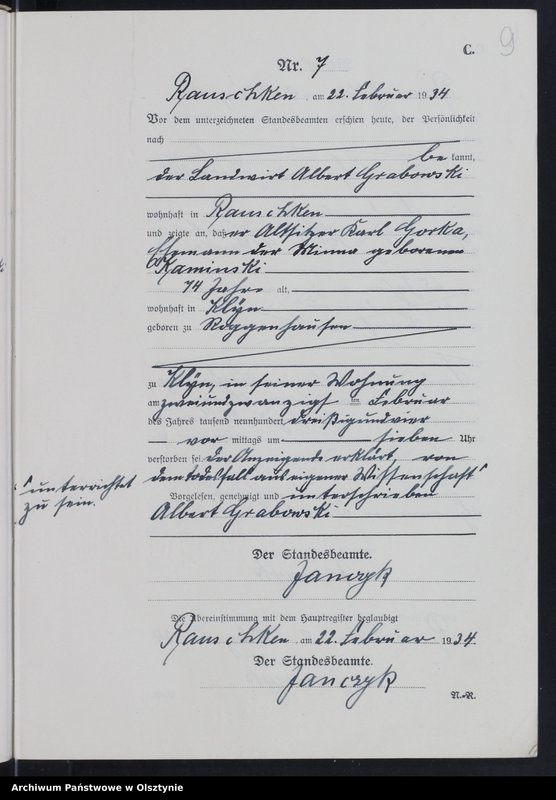 9
C.
Nr. 7
Rauschken, am 22. Februar 1934
Vor dem unterzeichneten Standesbeamten erschien heute, der Persönlichkeit
nach
be kannt,
der Landwirt Albert Grabowski
wohnhaft in Rauschken
und zeigte an, daß er Altsitzer Karl Gorka,
Ehemann der Minna geborenen
Kaminski
74 Jahre alt,
wohnhaft in Klÿn
geboren zu Roggenhausen
zu Klÿn, in seiner Wohnung
am zweiundzwanzigsten Februar
des Jahres tausend neunhundert dreißigundvier
vor mittags um sieben Uhr
verstorben sei. Der Anzeigende erklärt, von
dem todesfall aus eigener Wissenschaft"
"unterrichtet
zu sein.
Vorgelesen, genehmigt und unterschrieben
Albert Grabowski
Der Standesbeamte.
Janczyk
Die Übereinstimmung mit dem Hauptregister beglaubigt
Rauschken, am 22. Februar 1934.
Der Standesbeamte.
Janczyk
N.-R.
Archiwum Państwowe w Olsztynie